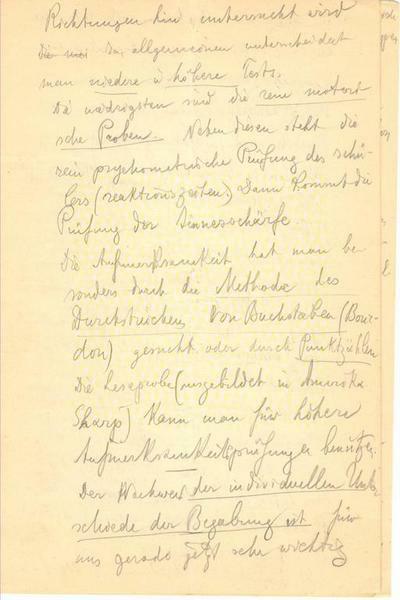 Richtungen hin untersucht wird
Im allgemeinen unterscheidet
man niedere u höhere Tests.
Die niedrigsten sind die rein motori
sche Proben. Neben diesen steht die
rein psychometrische Prüfung des schü-
lers (reaktionszeiten.) Dann kommt die
Prüfung der Sinnesschärfe.
Die Aufmerksamkeit hat man be
sonders durch die Methode des
Durchstreichens von Buchstaben (Bour-
don) gesucht oder durch Punktzählen
Die Leseprobe (ausgebildet in Amerika
Sharp) kann man für höhere
Aufmerksamkeitsprüfungen benützen.
Der Nachweis der individuellen Unter
schiede der Begabung ist für
uns gerade jetzt sehr wichtig